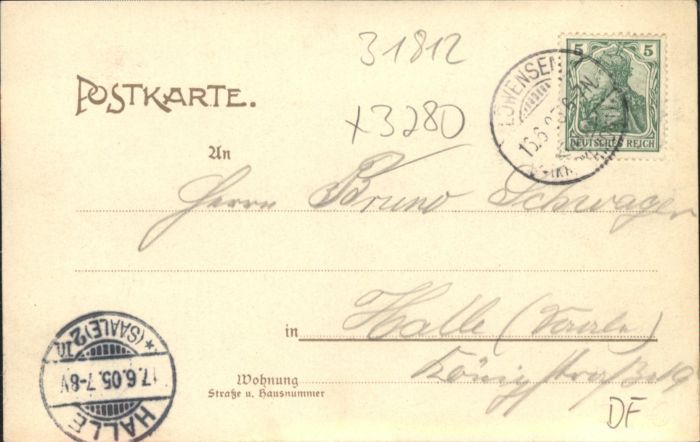 31812
POSTKARTE.
x 3280
5 5
DEUTSCHES REICH
LÖWENSEN
16.6.05
An
Herrn Bruno Schwager
in Halle (Saale)
Königstraße 19
Wohnung
Straße u. Hausnummer
DF
HALLE
17.6.05.7-8V.
*(SAALE)2